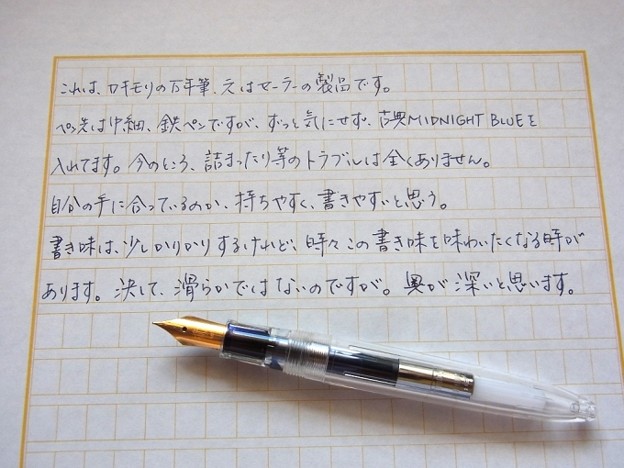 これは、ロキモリの万年筆、元はセーラーの製品です。
ペン先は中細、鉄ペンですが、ずっと気にせず、古典MIDNIGHT BLUEを
入れてます。今のところ、詰まったり等のトラブルは全くありません。
自分の手に合っているのか、持ちやすく、書きやすいと思う。
書き味は、少しかりかりするけれど、時々この書き味を味わいたくなる時が
あります。決して、滑らかではないのですが。奥が深いと思います。